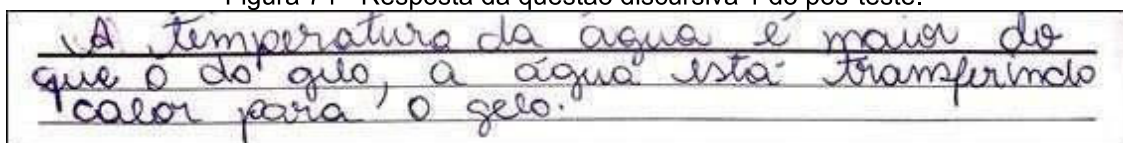 Figura 74 - Resposta da questão discursiva 1 do pós-teste.
A temperatura da água é maior do
que o do gelo, a água está transferindo
calor para o gelo.